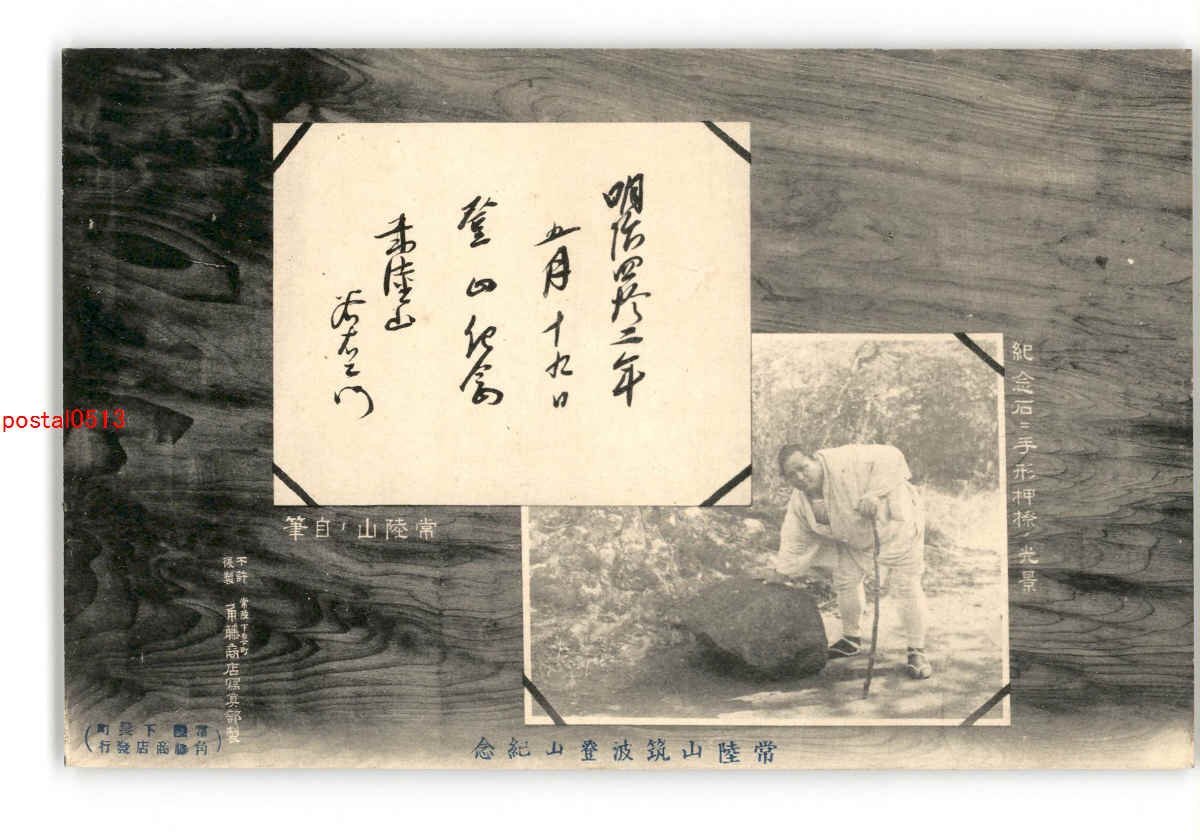 明治四拾二年
五月十九日
登山紀念
常陸山
谷右エ門
常陸山ノ自筆
紀念石ニ手形押捺ノ光景
不許
復製
常陸下妻町
角藤商店寫眞部製
常陸山筑波登山紀念
常陸下妻町
角藤商店發行
postal0513